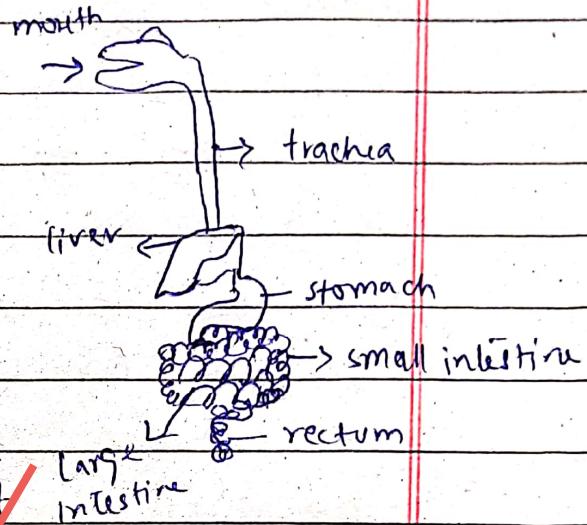 mouth
trachea
liver
stomach
small intestine
rectum
Large
Intestine